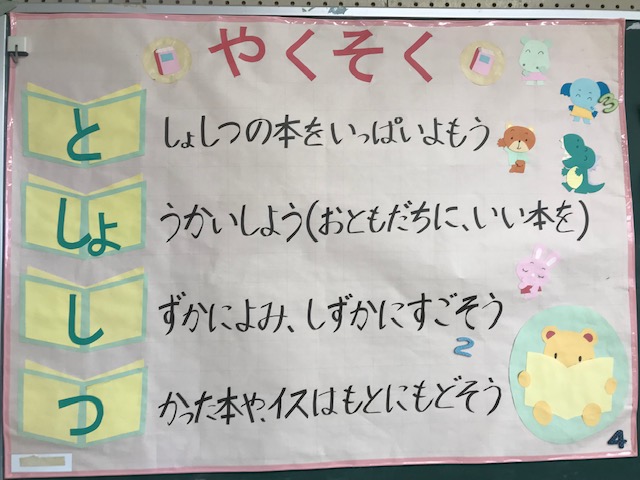 やくそく
としょしつの本をいっぱいよもう
しょうかいしよう(おともだちに、いい本を)
しずかによみ、しずかにすごそう
2
つかった本や、イスはもとにもどそう
4